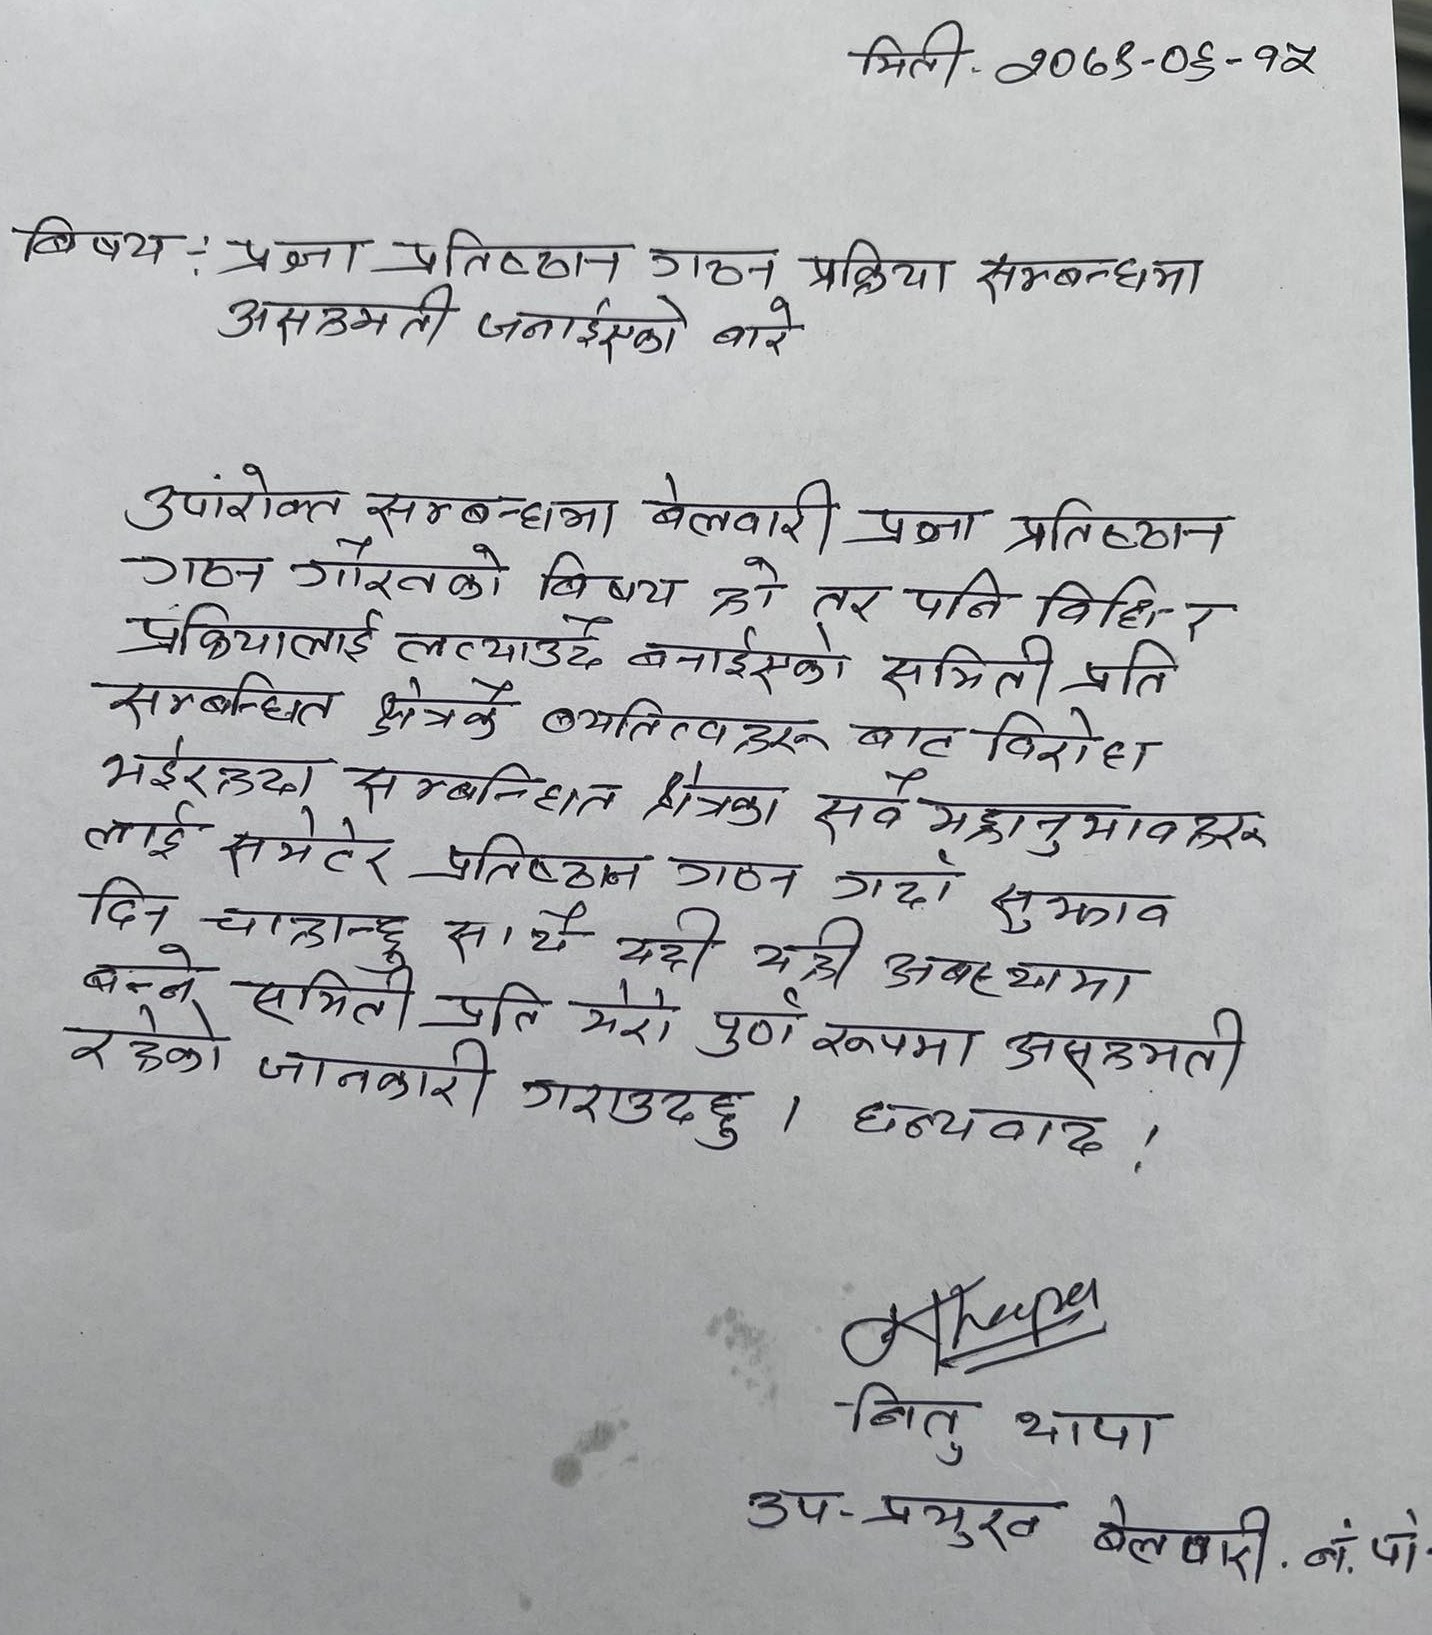 मिती. २०७९-०६-१५
बिषय :- प्रज्ञा प्रतिष्ठान गठन प्रक्रिया सम्बन्धमा
असहमती जनाईएको बारे
उपरोक्त सम्बन्धमा बेलवारी प्रज्ञा प्रतिष्ठान
गठन गौरवको बिषय हो तर पनि विधि र
प्रक्रियालाई लत्याउदै बनाईएको समिती प्रति
सम्बन्धित क्षेत्रकै व्यतित्वहरू बाट विरोध
भईरहदा सम्बन्धित क्षेत्रका सवै महानुभावहरू
लाई समेटेर प्रतिष्ठान गठन गर्दा सुझाव
दिन चाहान्छु साथै यदी यही अबस्थामा
बन्ने समिती प्रति मेरो पुर्ण रूपमा असहमती
रहेको जानकारी गराउदछु । धन्यवाद !
Thapa
नितु थापा
उप-प्रमुख बेलबारी. न. पा.